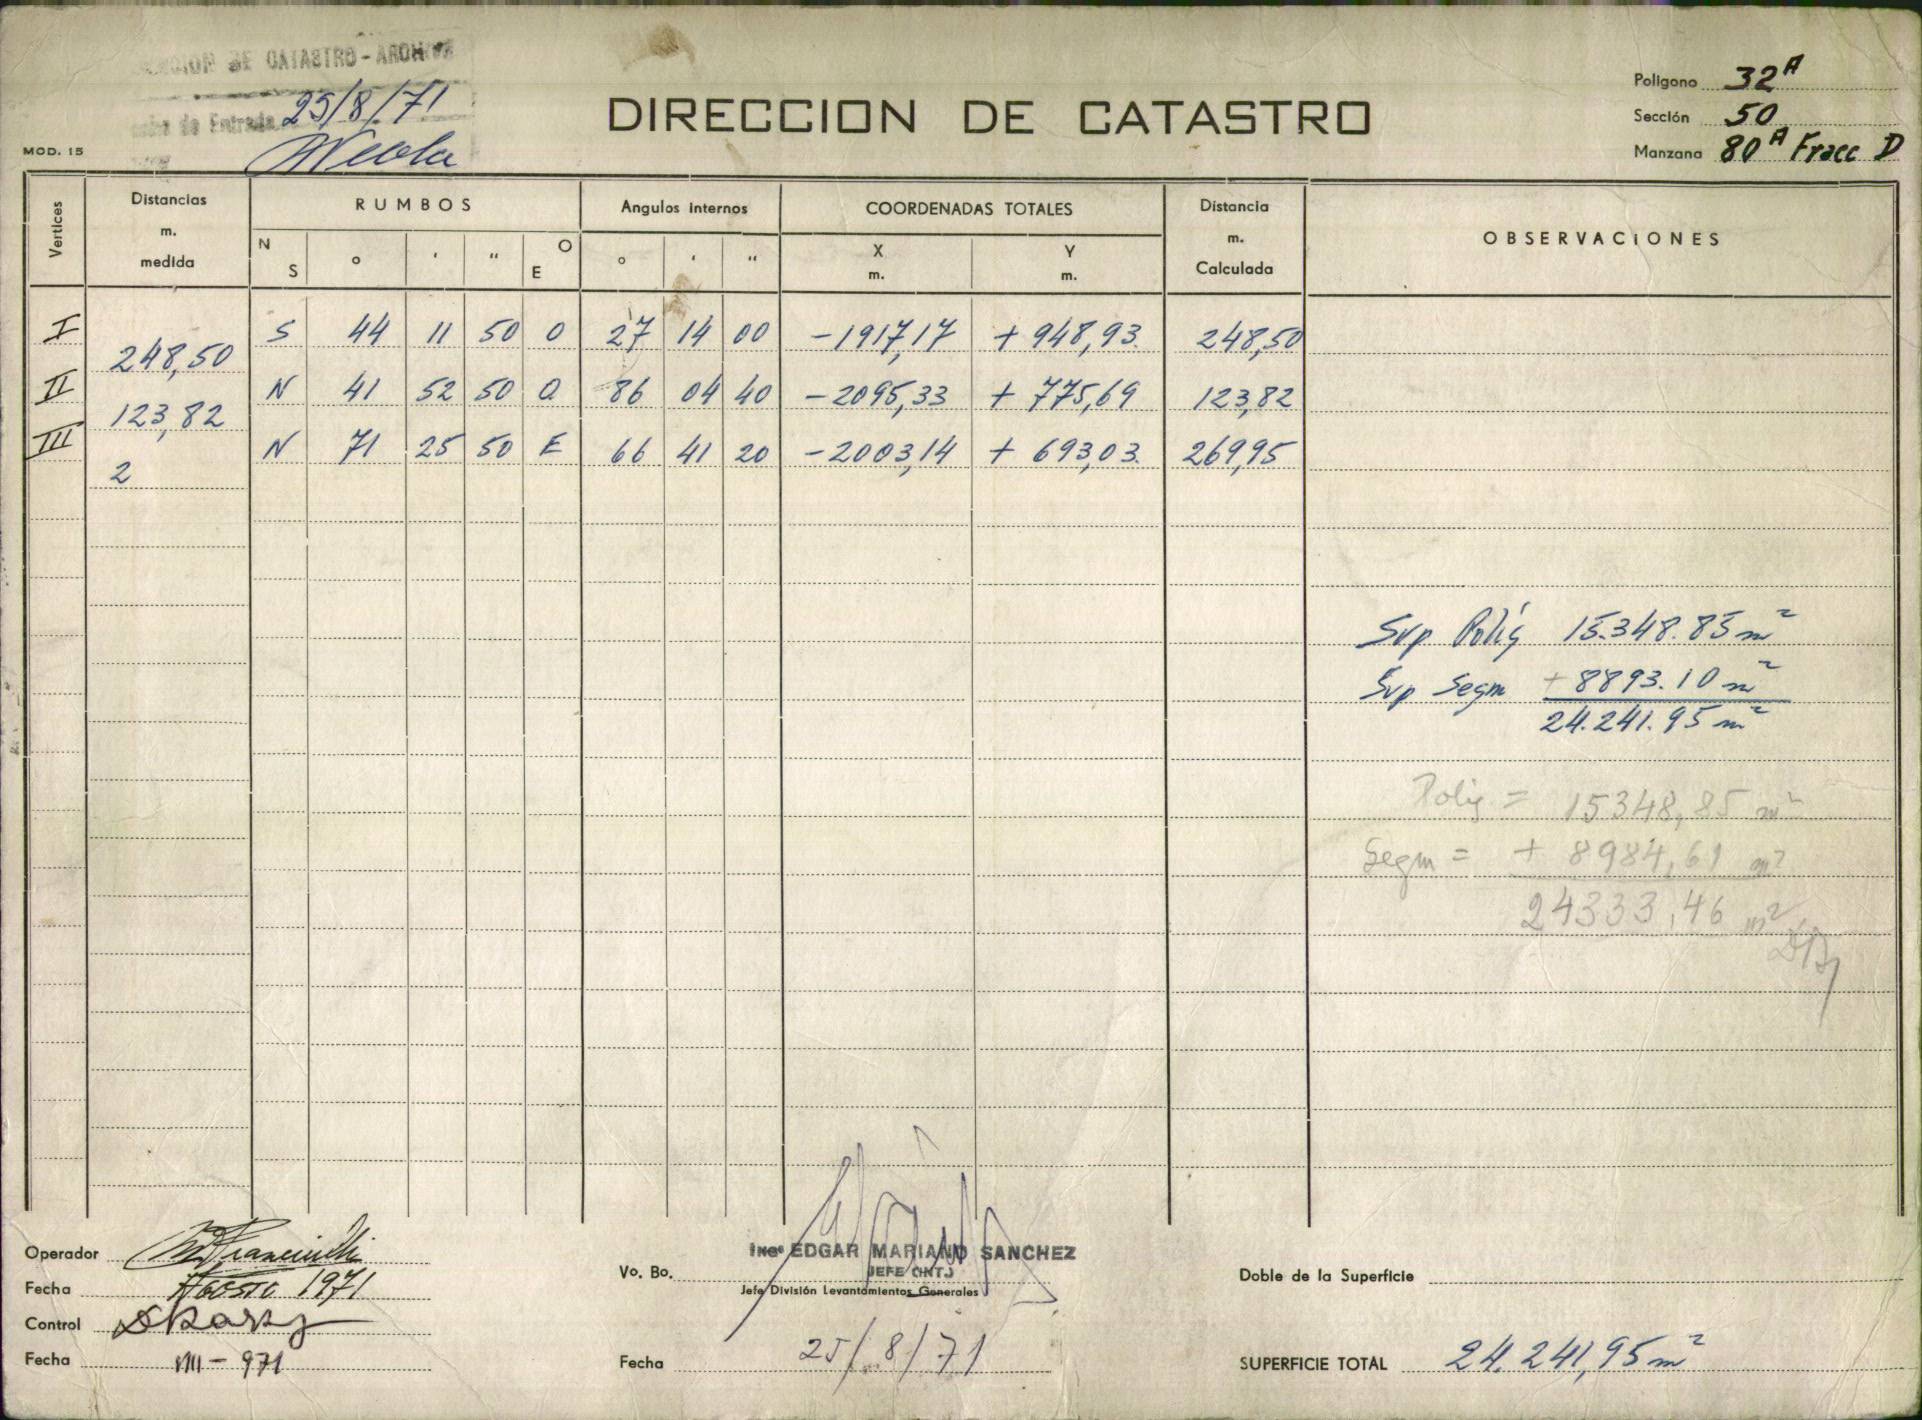 DE CATASTRO - ARCHIVO
de Entrada 25/8/71
MOD. 15
DIRECCION DE CATASTRO
Poligono 32A
Sección 50
Manzana 80A Fracc D
Vertices
Distancias
m.
medida
RUMBOS
N S ° ' " O E
Angulos internos
° ' "
COORDENADAS TOTALES
X m.
Y m.
Distancia
m.
Calculada
OBSERVACIONES
I S 44 11 50 O 27 14 00 -1917,17 + 948,93 248,50
248,50
II N 41 52 50 O 86 04 40 -2095,33 + 775,69 123,82
123,82
III N 71 25 50 E 66 41 20 -2003,14 + 693,03 269,95
2
Sup Polig 15.348.85 m²
Sup Segm +8893.10 m²
24.241.95 m²
Polig = 15348,85 m²
Segm = + 8984,61 m²
24333,46 m²
Operador
Fecha Agosto 1971
Control
Fecha VIII-971
Vo. Bo.
Ingº EDGAR MARIANO SANCHEZ
Jefe División Levantamientos Generales
Fecha 25/8/71
Doble de la Superficie
SUPERFICIE TOTAL 24.241,95 m²